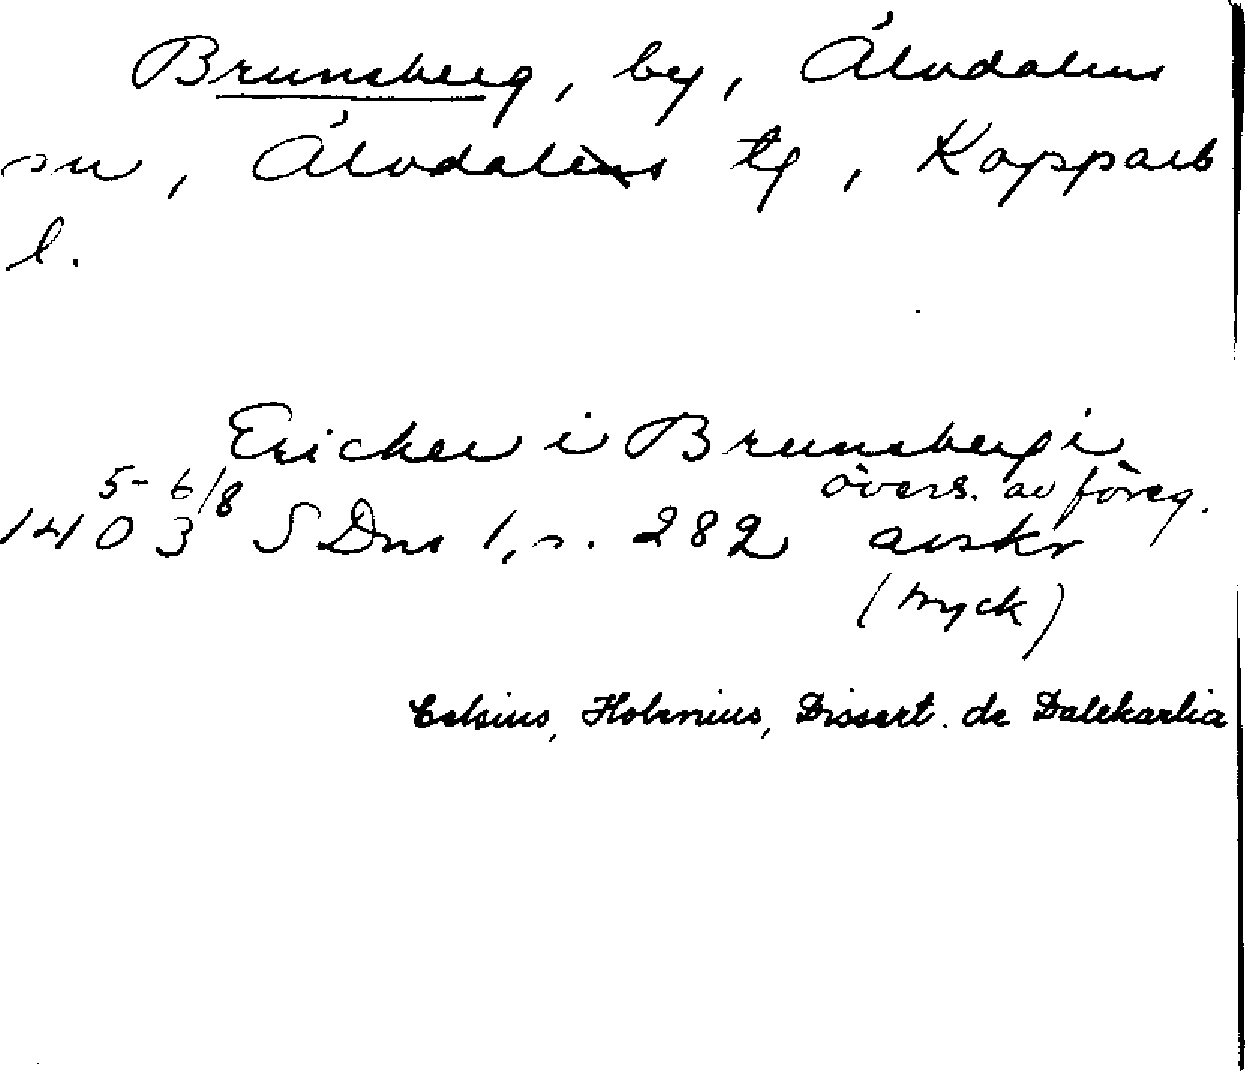 Brunsberg, by, Älvdalens
sn, Älvdalens tg, Kopparb
l.
Ericker i Brunsberg i
5-6/8 övers. av föreg.
1403 SDns 1, s. 282 avskr
(tryck)
Celsius, Holenius, Dissert. de Dalekarlia